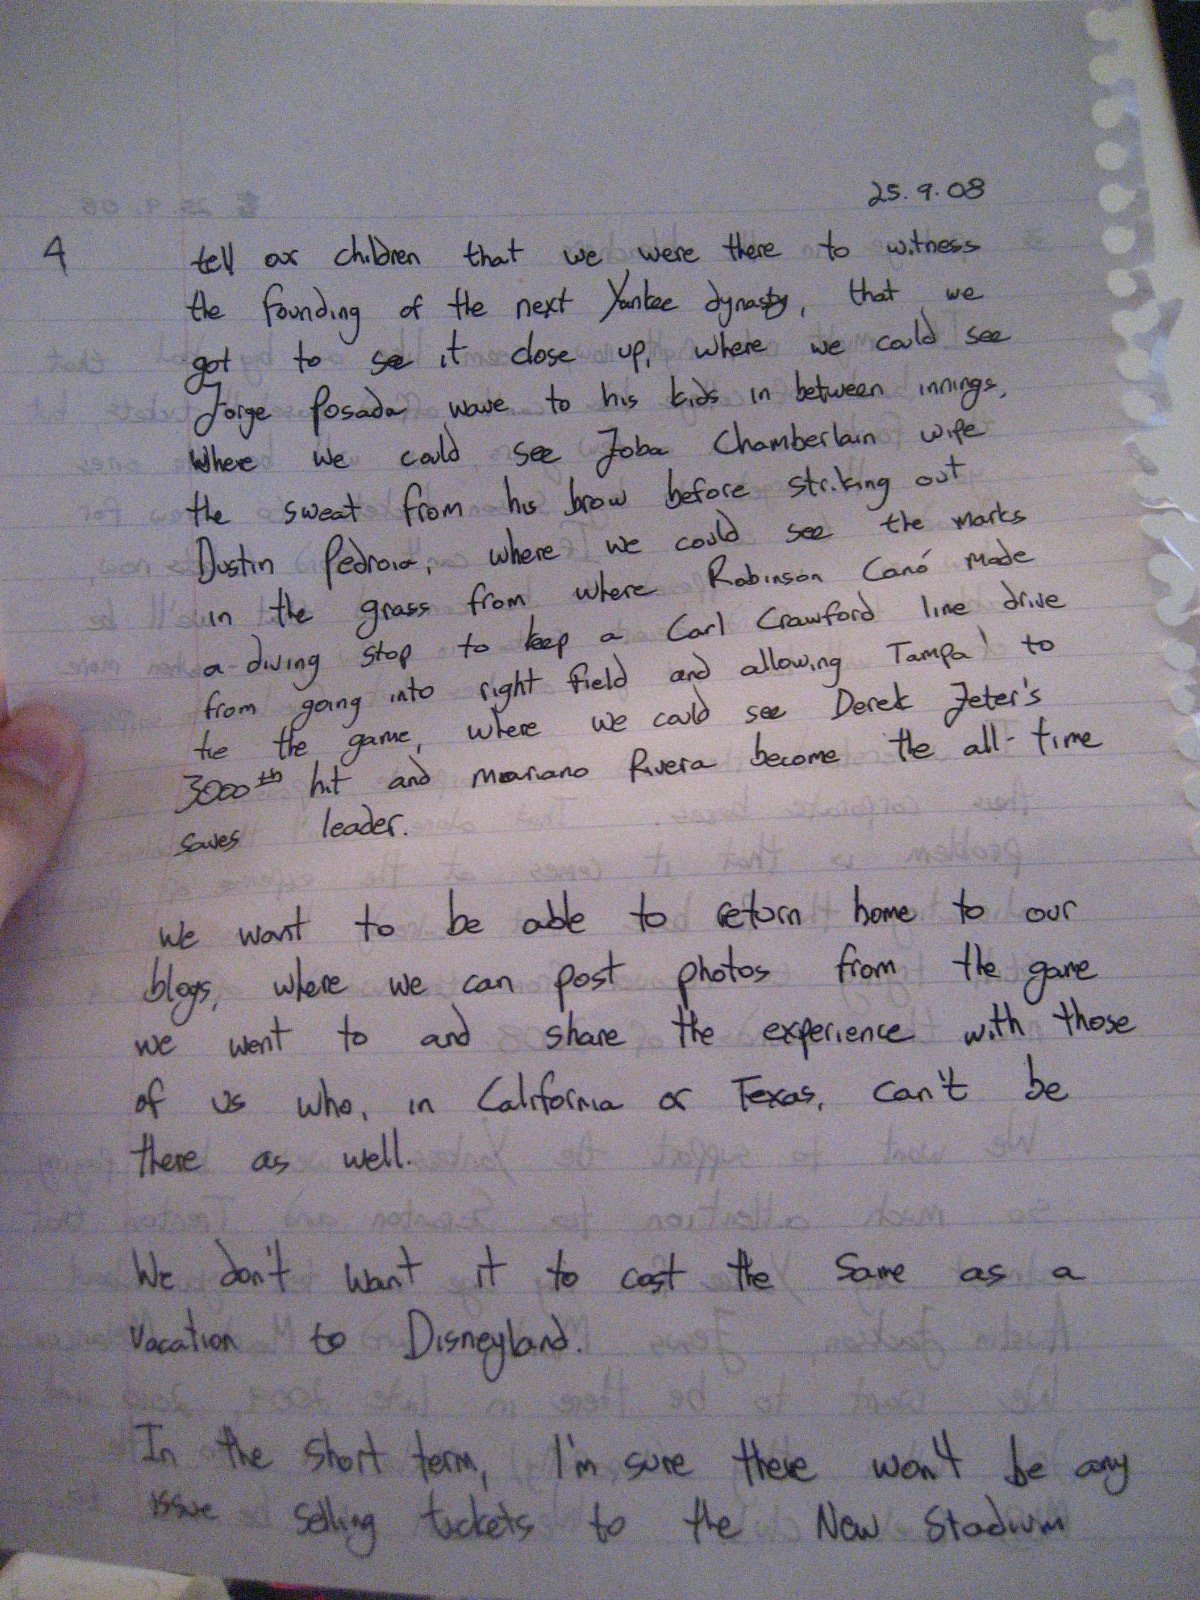 25.9.08
4 tell our children that we were there to witness
the founding of the next Yankee dynasty, that we
got to see it close up, where we could see
Jorge Posada wave to his kids in between innings,
where we could see Joba Chamberlain wipe
the sweat from his brow before striking out
Dustin Pedroia, where we could see the marks
in the grass from where Robinson Canó made
a diving stop to keep a Carl Crawford line drive
from going into right field and allowing Tampa to
tie the game, where we could see Derek Jeter's
3000th hit and Mariano Rivera become the all-time
saves leader.
We want to be able to return home to our
blogs, where we can post photos from the game
we went to and share the experience with those
of us who, in California or Texas, can't be
there as well.
We don't want it to cost the same as a
vacation to Disneyland.
In the short term, I'm sure there won't be any
issue selling tickets to the New Stadium